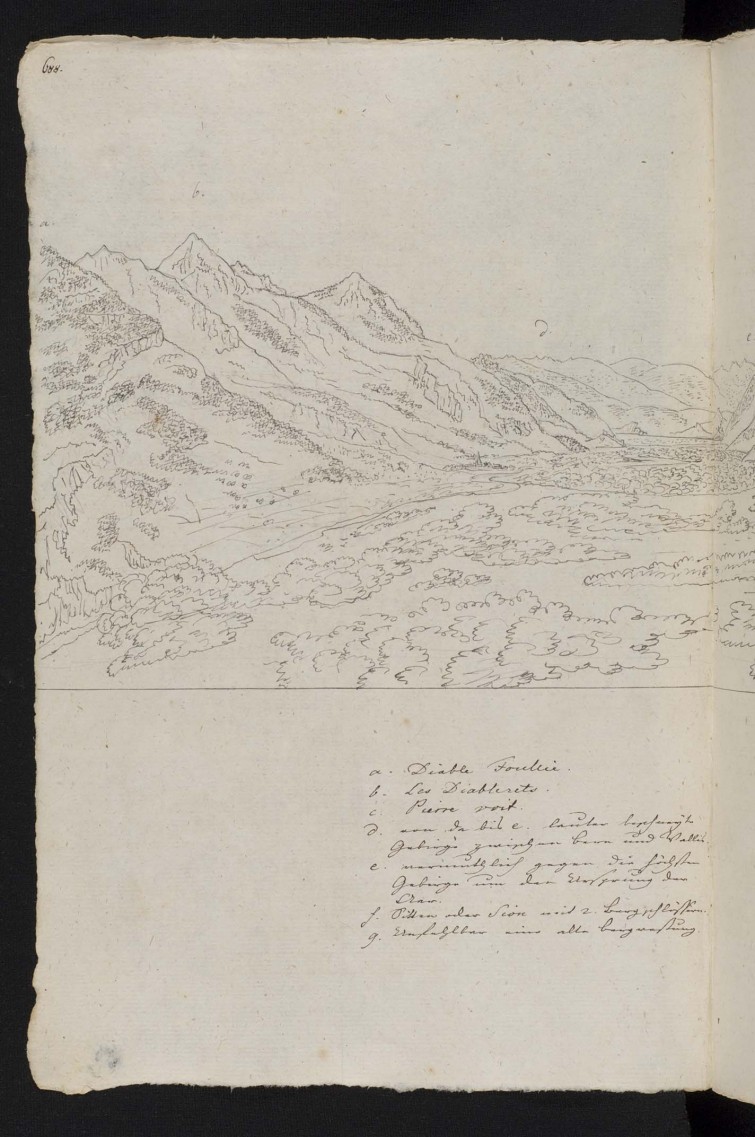 688.
b.
a.
d
a. Diable Foullie.
b. Les Diablerets.
c. Pierre voit.
d. von da bis e. lauter beschneyte
Gebirge zwischen Bern und Vallis.
e. vermuthlich gegen die höchsten
Gebirge um den Ursprung der
Aar.
f. Sitten oder Sion mit 2. Bergschlössern.
g. Unfehlbar eine alte bergvestung